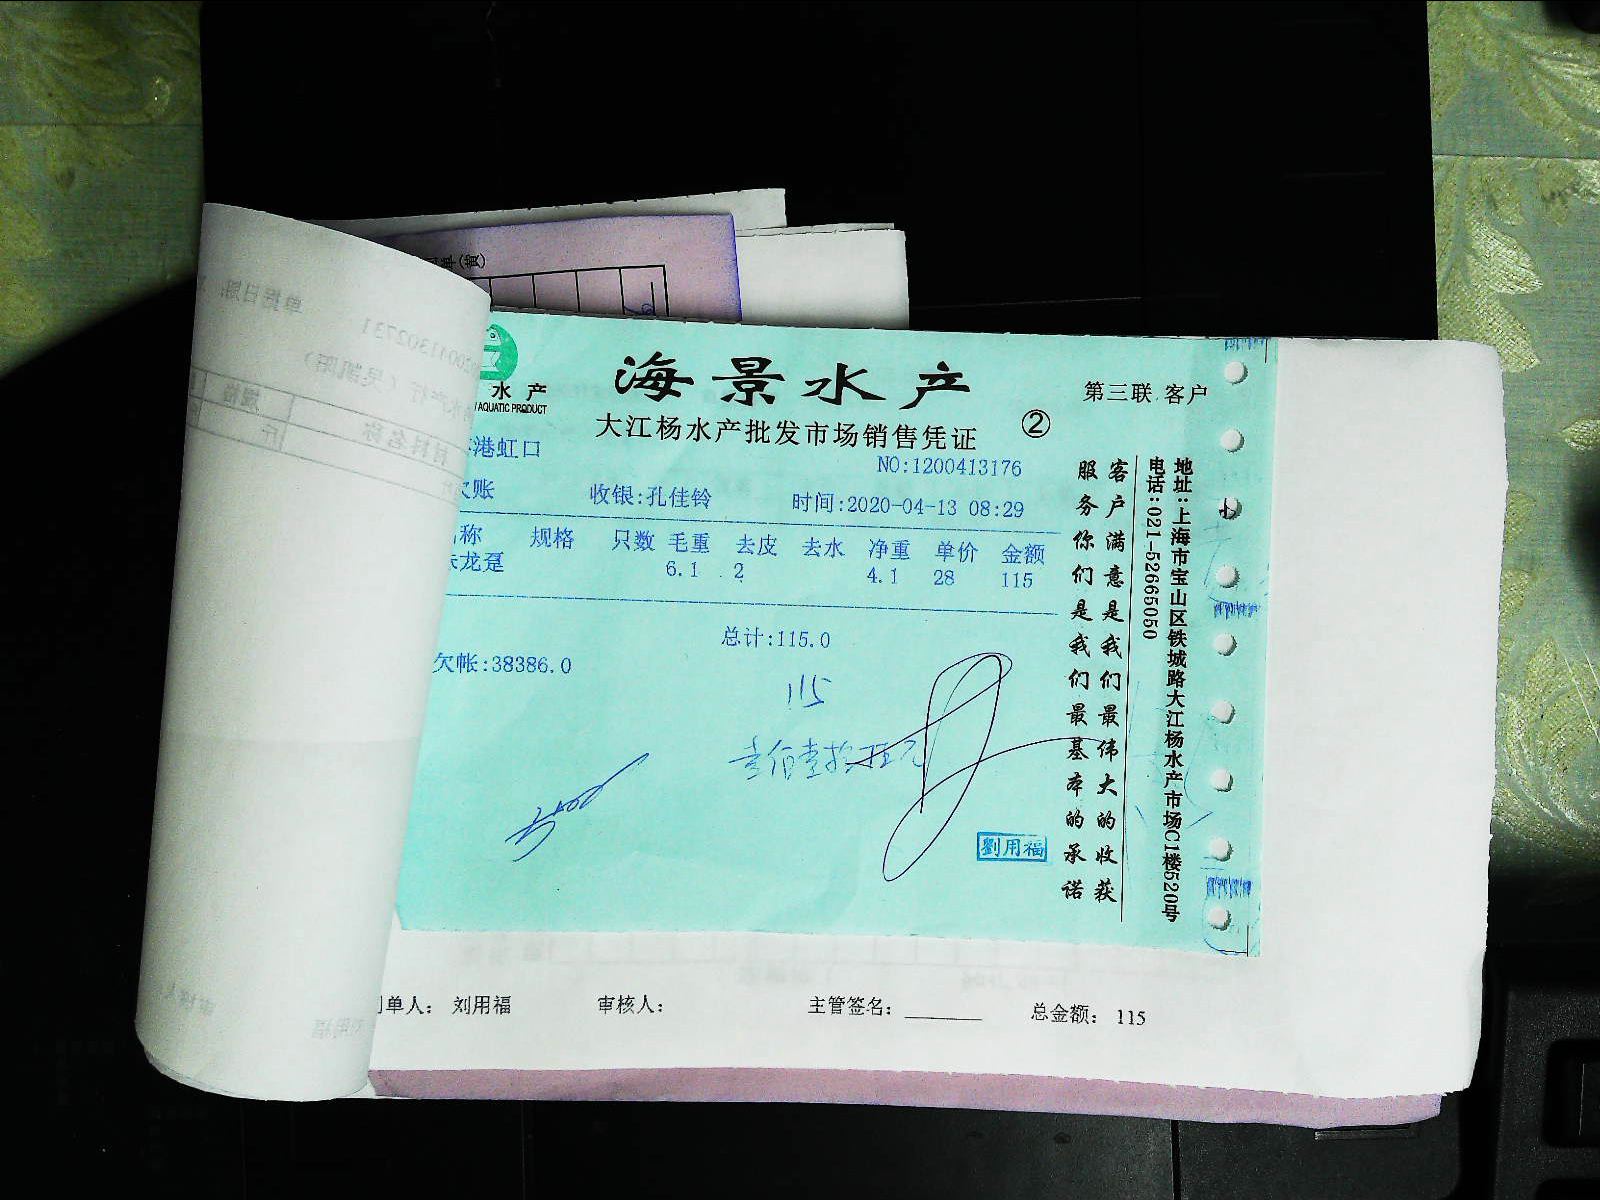 单(黄)
水产
AQUATIC PRODUCT
海景水产
第三联 客户
大江杨水产批发市场销售凭证 ②
港虹口
NO:1200413176
欠账 收银:孔佳铃 时间:2020-04-13 08:29
称 规格 只数 毛重 去皮 去水 净重 单价 金额
龙趸 6.1 2 4.1 28 115
总计:115.0
欠帐:38386.0
115
壹佰壹拾伍元
劉用福
客户满意是我们最伟大的收获
服务你们是我们最基本的承诺
地址:上海市宝山区铁城路大江杨水产市场C1楼520号
电话:021-52665050
单人: 刘用福 审核人: 主管签名: 总金额: 115